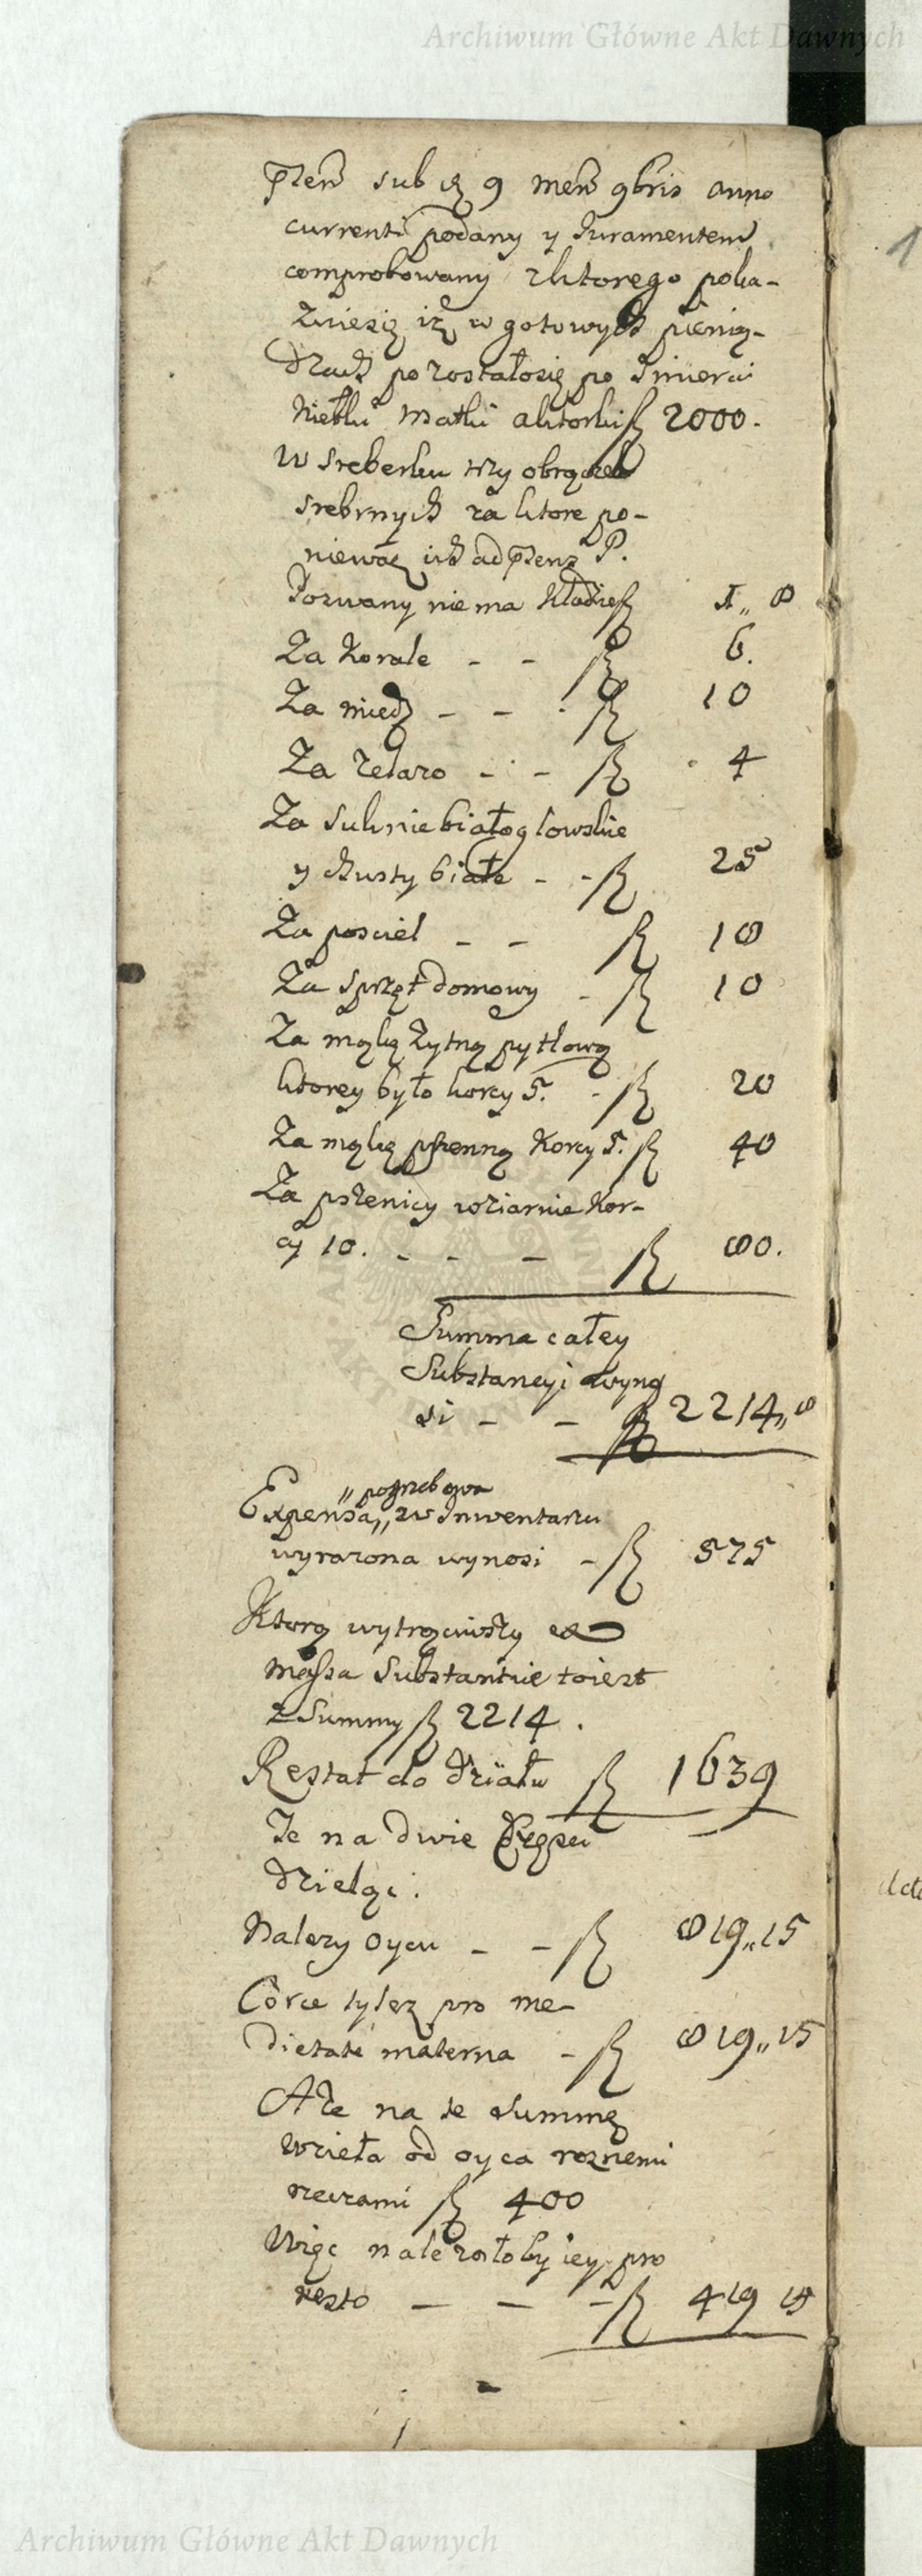 Archiwum Główne Akt Dawnych
sub 9 mens 9bris anno
currenti podany y Juramentem
comprobowany zktorego poka-
zuiesię iż w gotowych pienią-
dzach pozostałosię po Smierci
Niebki Matki aktorki fl 2000.
W Sreberku trzy obrączek
srebrnych za ktore po-
nieważ ich ad P.
Pozwany niema kładzie fl 1„ 8
Za korale - - fl 6.
Za miedz - - fl 10
Za zelazo - - fl 4
Za suknie białogłowskie
y chusty białe - - fl 25
Za posciel - - fl 18
Za sprzęt domowy - fl 10
Za mąkę żytną pytlową
ktorey było korcy 5. - fl 20
Za mąkę pszenną korcy 5. fl 40
Za pszenicy wziarnie kor-
cy 10. - - - fl 80.
Summa całey
Substancyi wyno
si - - fl 2214„8
„ pogrzebowa
Expensa„ zw Inwentarzu
wyrazona wynosi - fl 575
Ktorą wytrąciwszy ex
massa Substantiae toiest
z Summy fl 2214.
Restat do działu fl 1639
Te na dwie Części
dzieląc.
Nalezy oycu - - fl 819„15
Corce tylez pro me-
dietate materna - fl 819„15
Aże na te summę
wzieła od oyca roznemi
rzeczami fl 400
Więc należałoby iey pro
resto - - - fl 419 15
Archiwum Główne Akt Dawnych